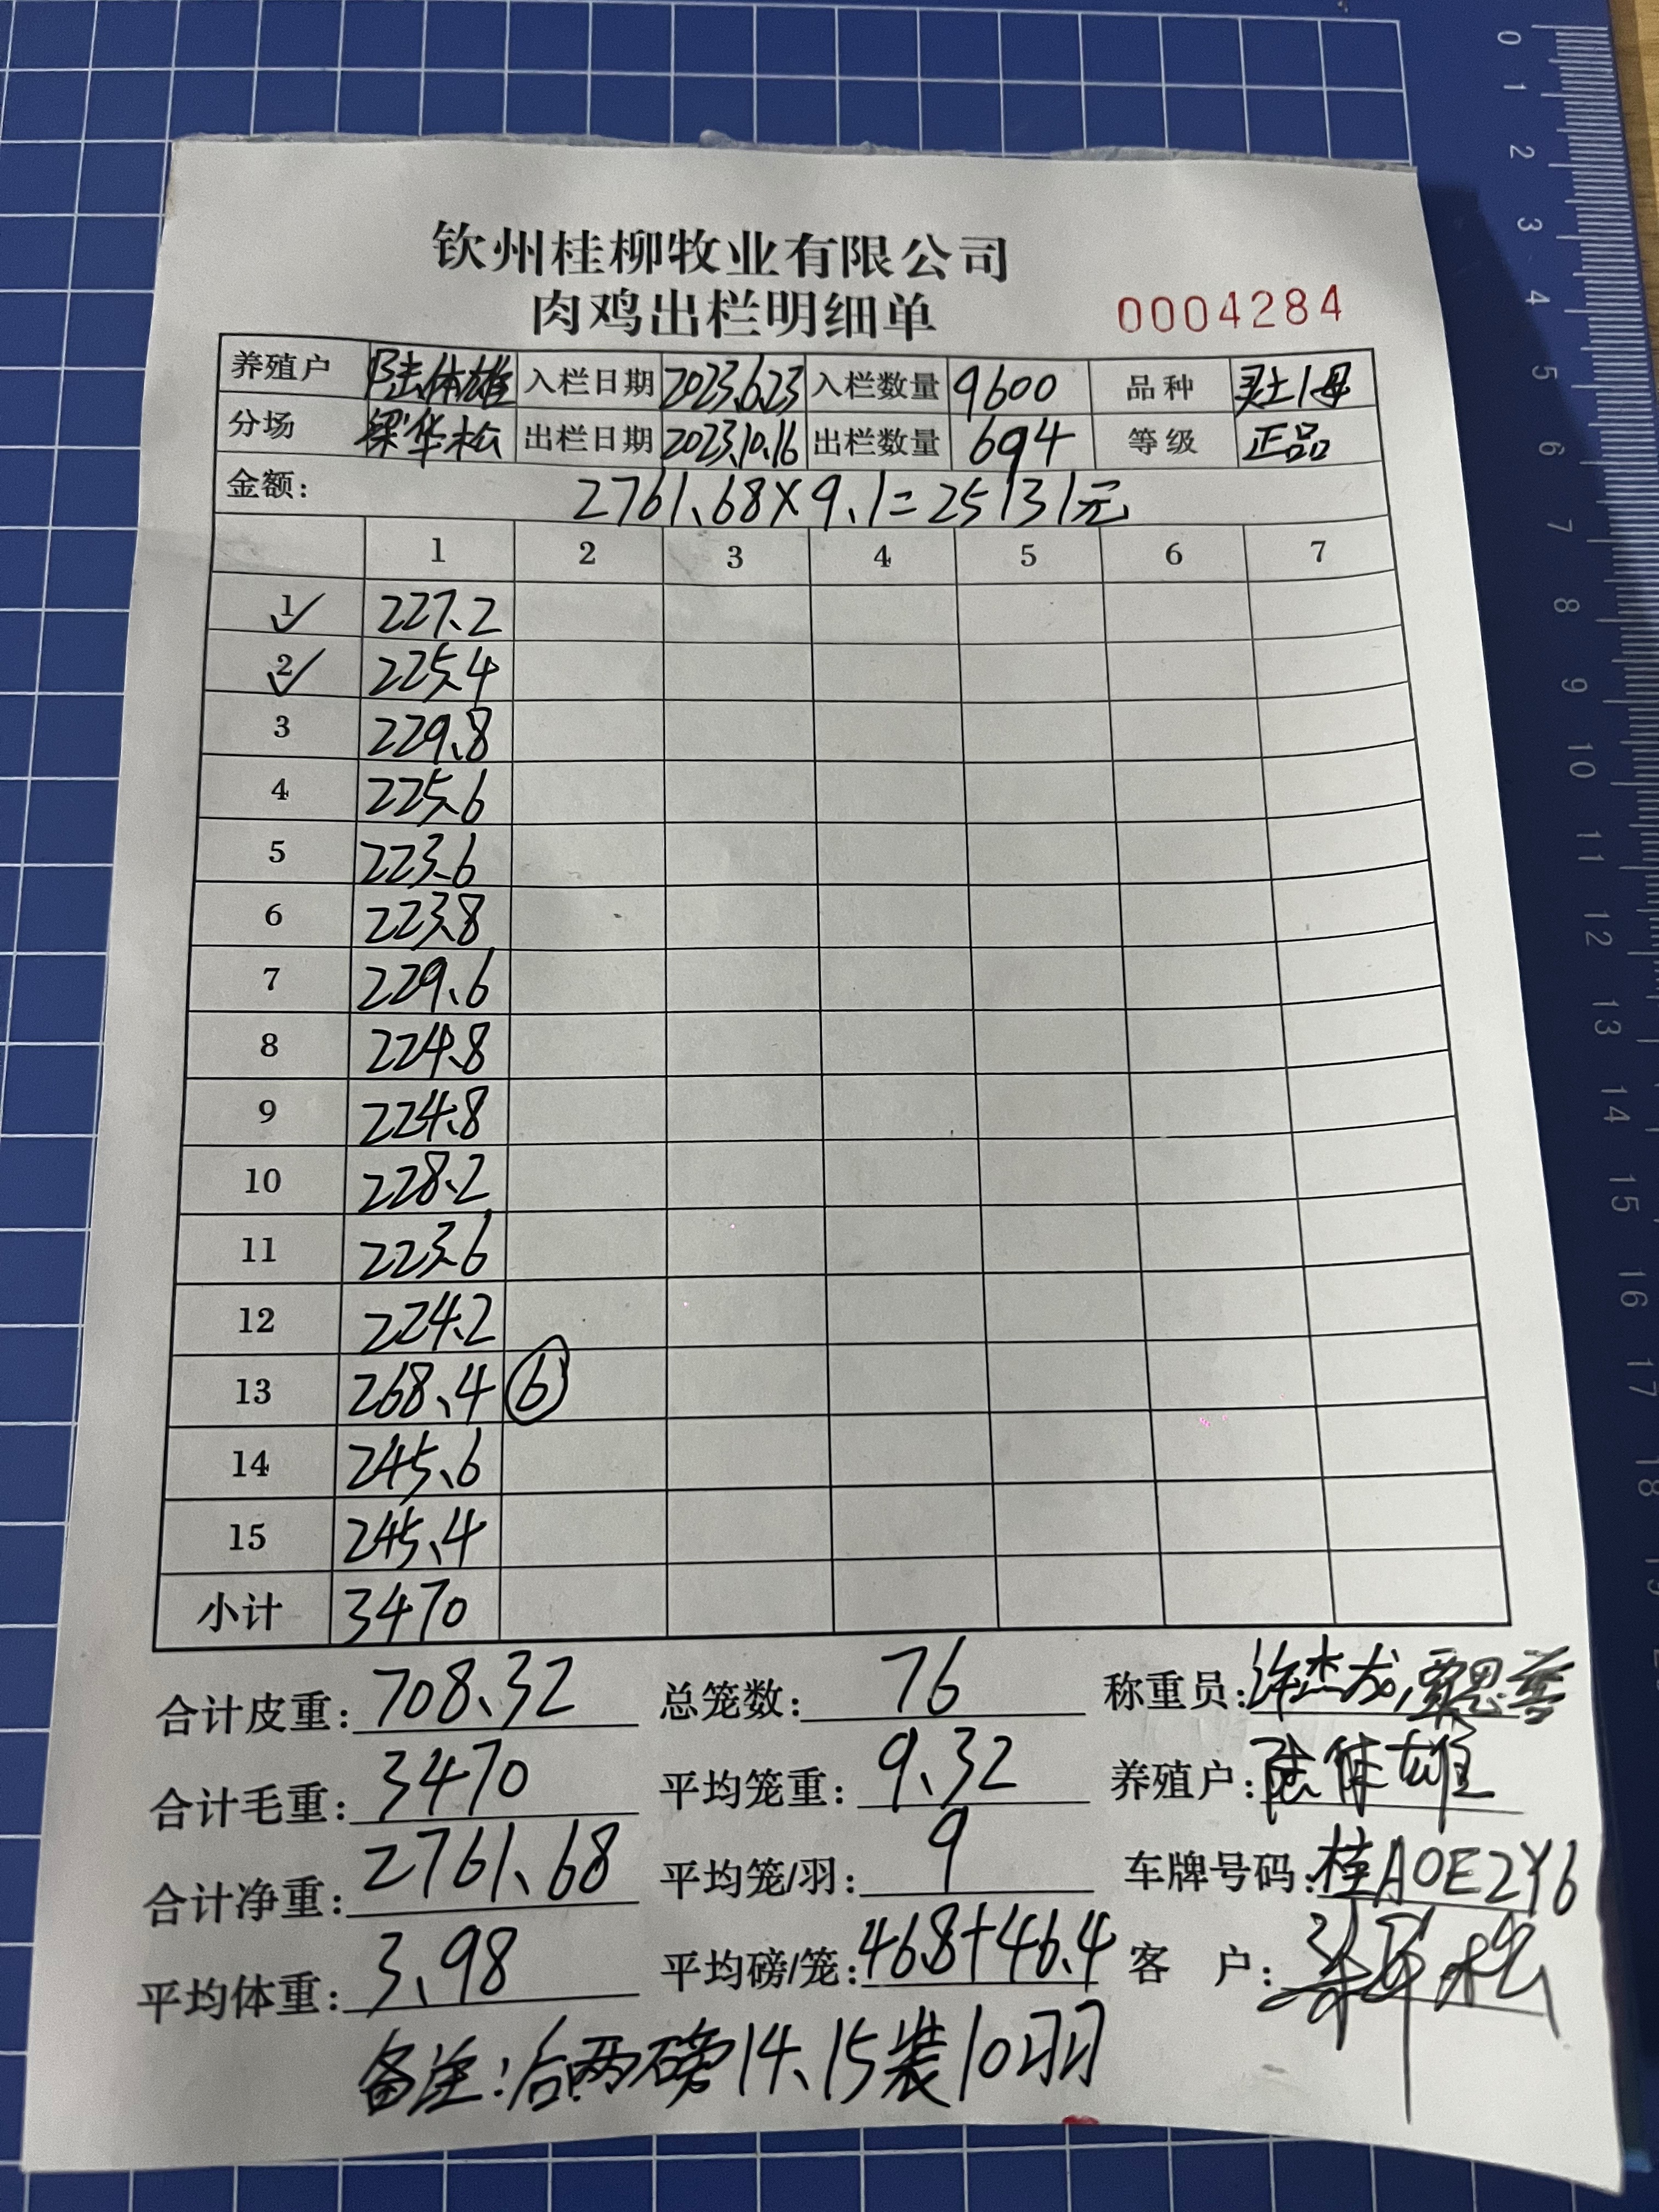 钦州桂柳牧业有限公司
肉鸡出栏明细单 0004284
养殖户 陆体雄 入栏日期 2023.6.23 入栏数量 9600 品种 灵土1母
分场 梁华松 出栏日期 2023.10.16 出栏数量 694 等级 正品
金额: 2761.68×9.1=25131元
1 2 3 4 5 6 7
1✓ 227.2
2✓ 225.4
3 229.8
4 225.6
5 223.6
6 223.8
7 229.6
8 224.8
9 224.8
10 228.2
11 223.6
12 224.2
13 268.4 ⑥
14 245.6
15 245.4
小计 3470
合计皮重: 708.32 总笼数: 76 称重员: 许杰龙,覃思善
合计毛重: 3470 平均笼重: 9.32 养殖户: 陆体雄
合计净重: 2761.68 平均笼/羽: 9 车牌号码: 桂A0E2Y6
平均体重: 3.98 平均磅/笼: 46.8+46.4 客 户:
备注:后两磅14、15装10羽
0 1 2 3 4 5 6 7 8 9 10 11 12 13 14 15 16 17 18